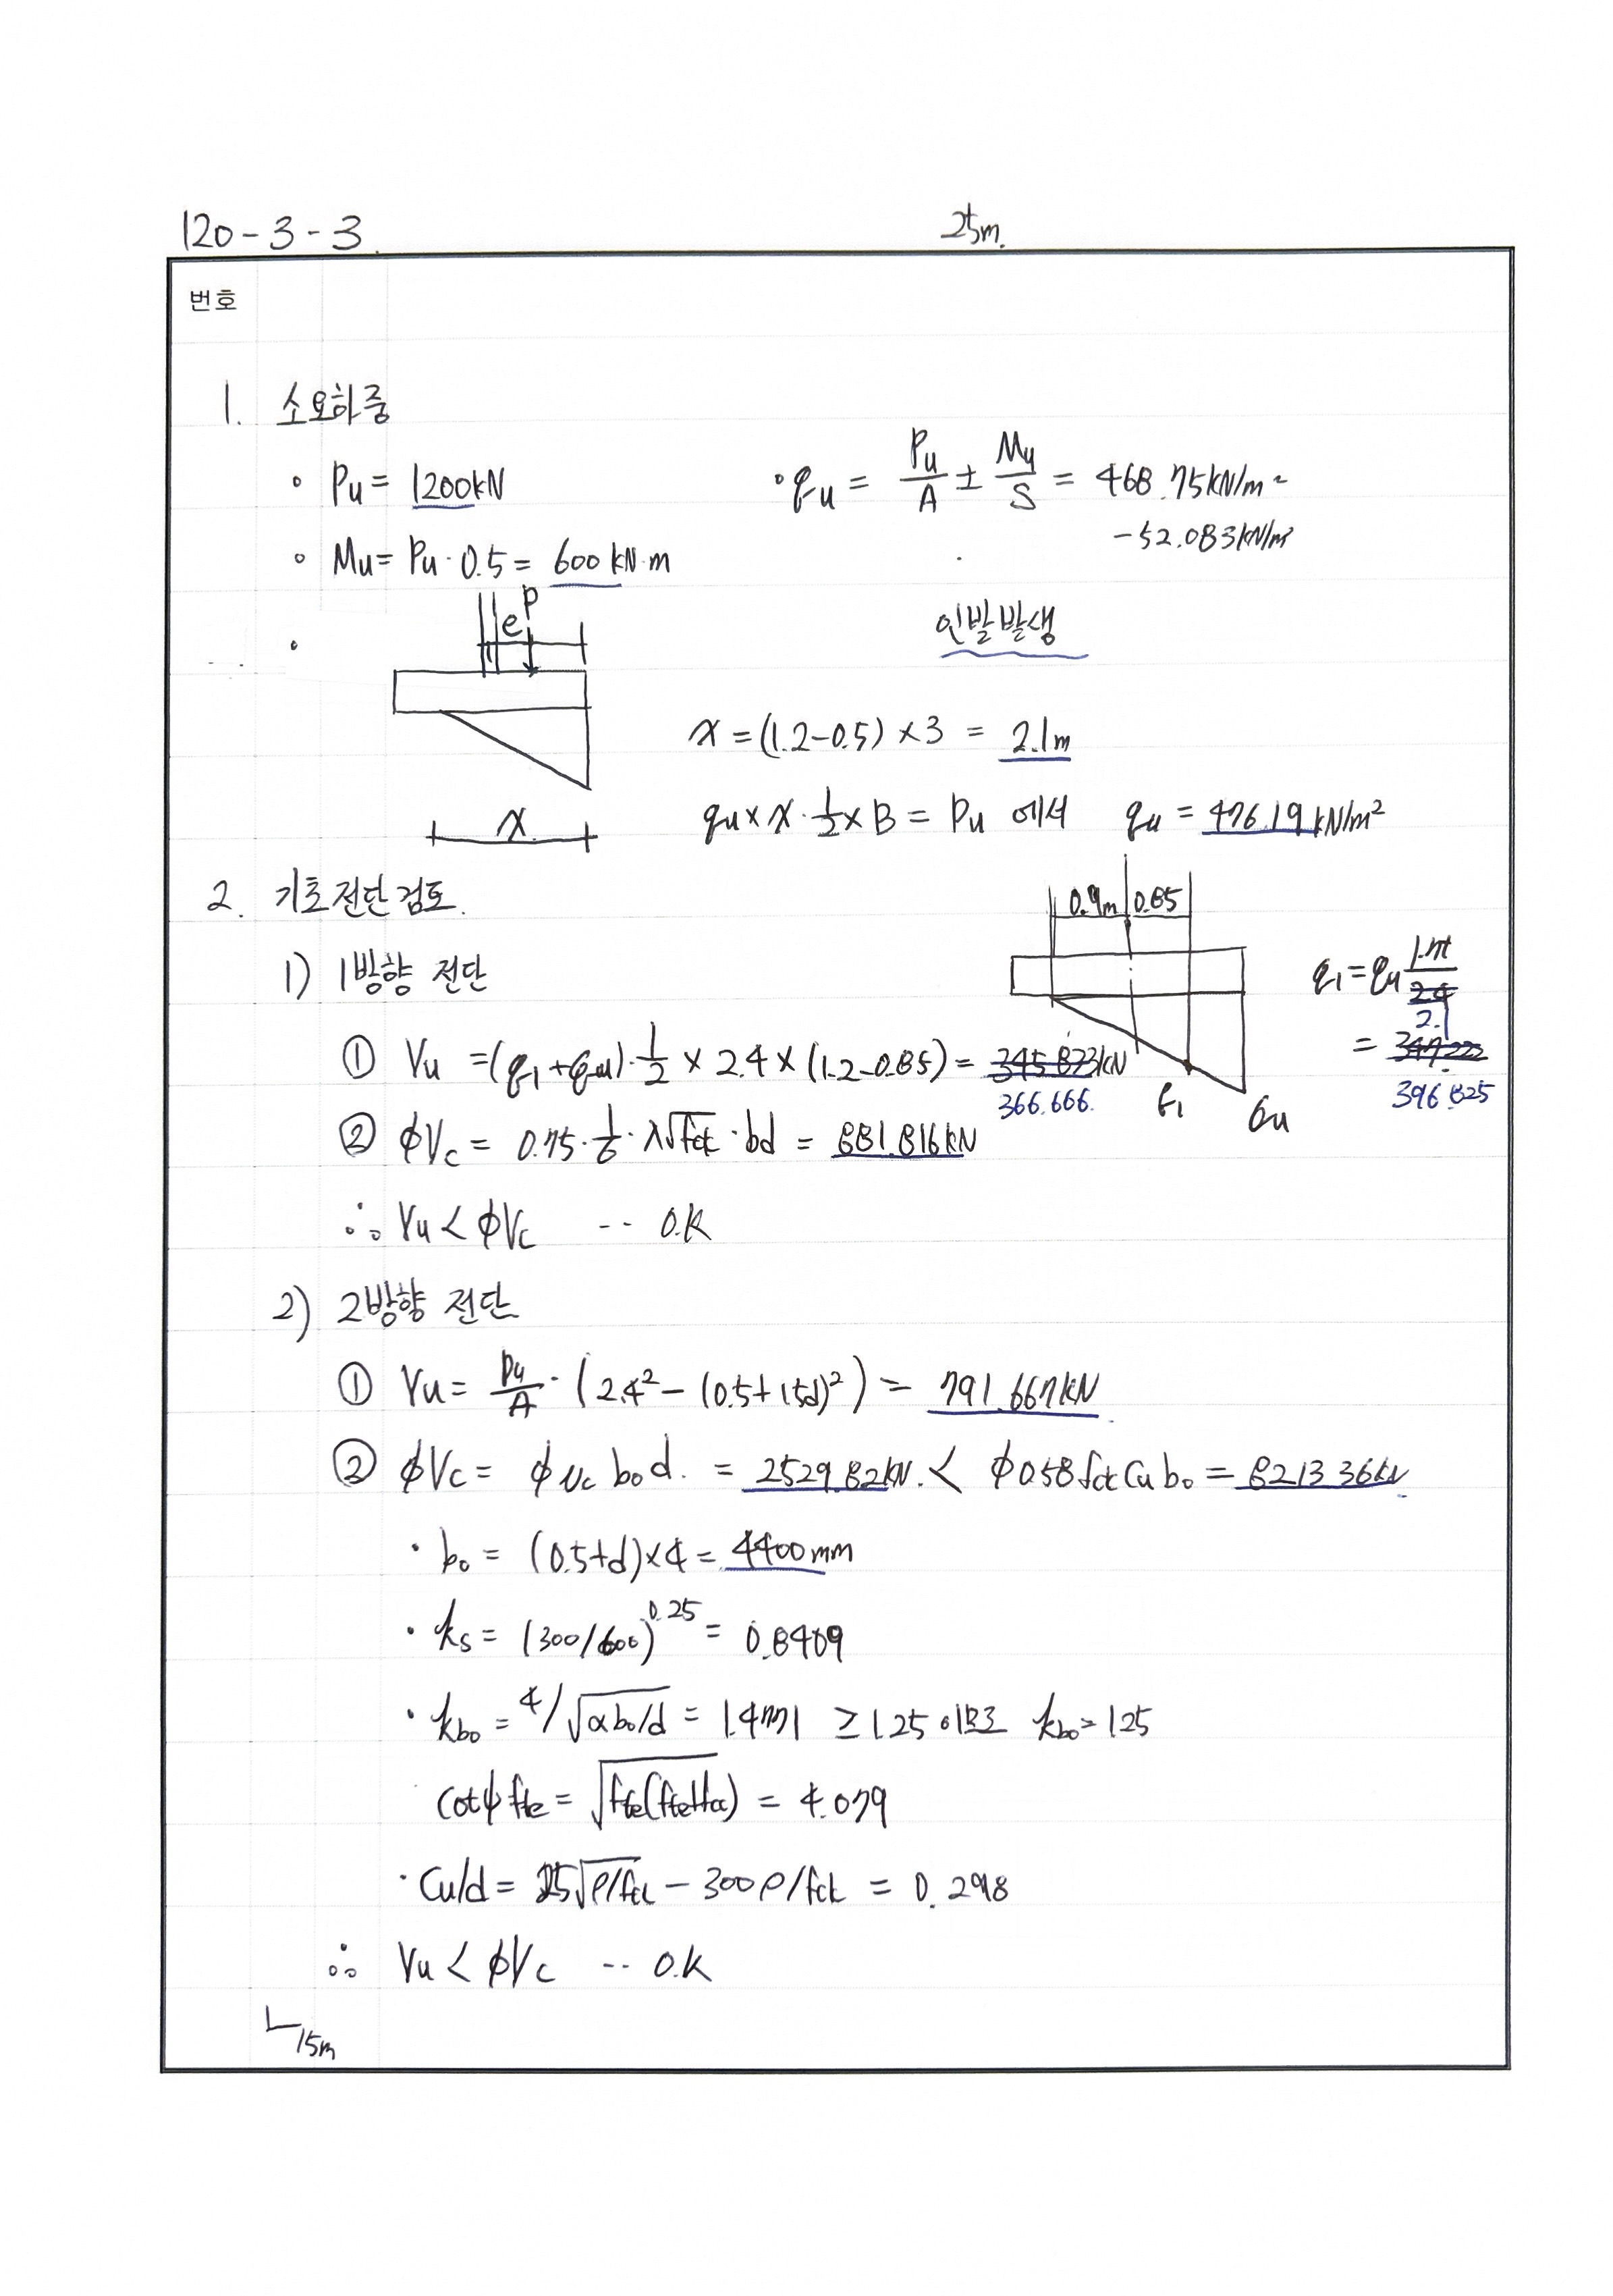 120 - 3 - 3.
25m.
번호
1. 소요하중
• Pu = 1200kN
• qu = Pu/A ± Mu/S = 468.75kN/m²
-52.083kN/m²
• Mu = Pu · 0.5 = 600 kN·m
인발발생
e P
x = (1.2-0.5) × 3 = 2.1m
qu × x · 1/2 × B = Pu 에서 qu = 476.19 kN/m²
x
2. 기초전단검토.
0.9m 0.85
1) 1방향 전단
q1 = qu 1.75/2.1
= 396.825
① Vu = (q1 + qu) · 1/2 × 2.4 × (1.2-0.85) = 345.873kN
366.666.
q1 qu
② φVc = 0.75 · 1/6 · λ√fck · bd = 881.816kN
∴ Vu < φVc -- O.K
2) 2방향 전단
① Vu = Pu/A · (2.4² - (0.5+1.5d)²) = 791.667kN
② φVc = φ vc bo d. = 2529.82kN. < φ0.58 fck Cu bo = 8213.36kN
• bo = (0.5+d)×4 = 4400mm
• ks = (300/600)^0.25 = 0.8409
• kbo = 4/√(αbo/d) = 1.4771 ≥ 1.25 이므로 kbo = 1.25
cotψ fte = √(fte(fte+fcc)) = 4.079
• Cu/d = 25√(ρ/fck) - 300ρ/fck = 0.298
∴ Vu < φVc -- O.K
15m